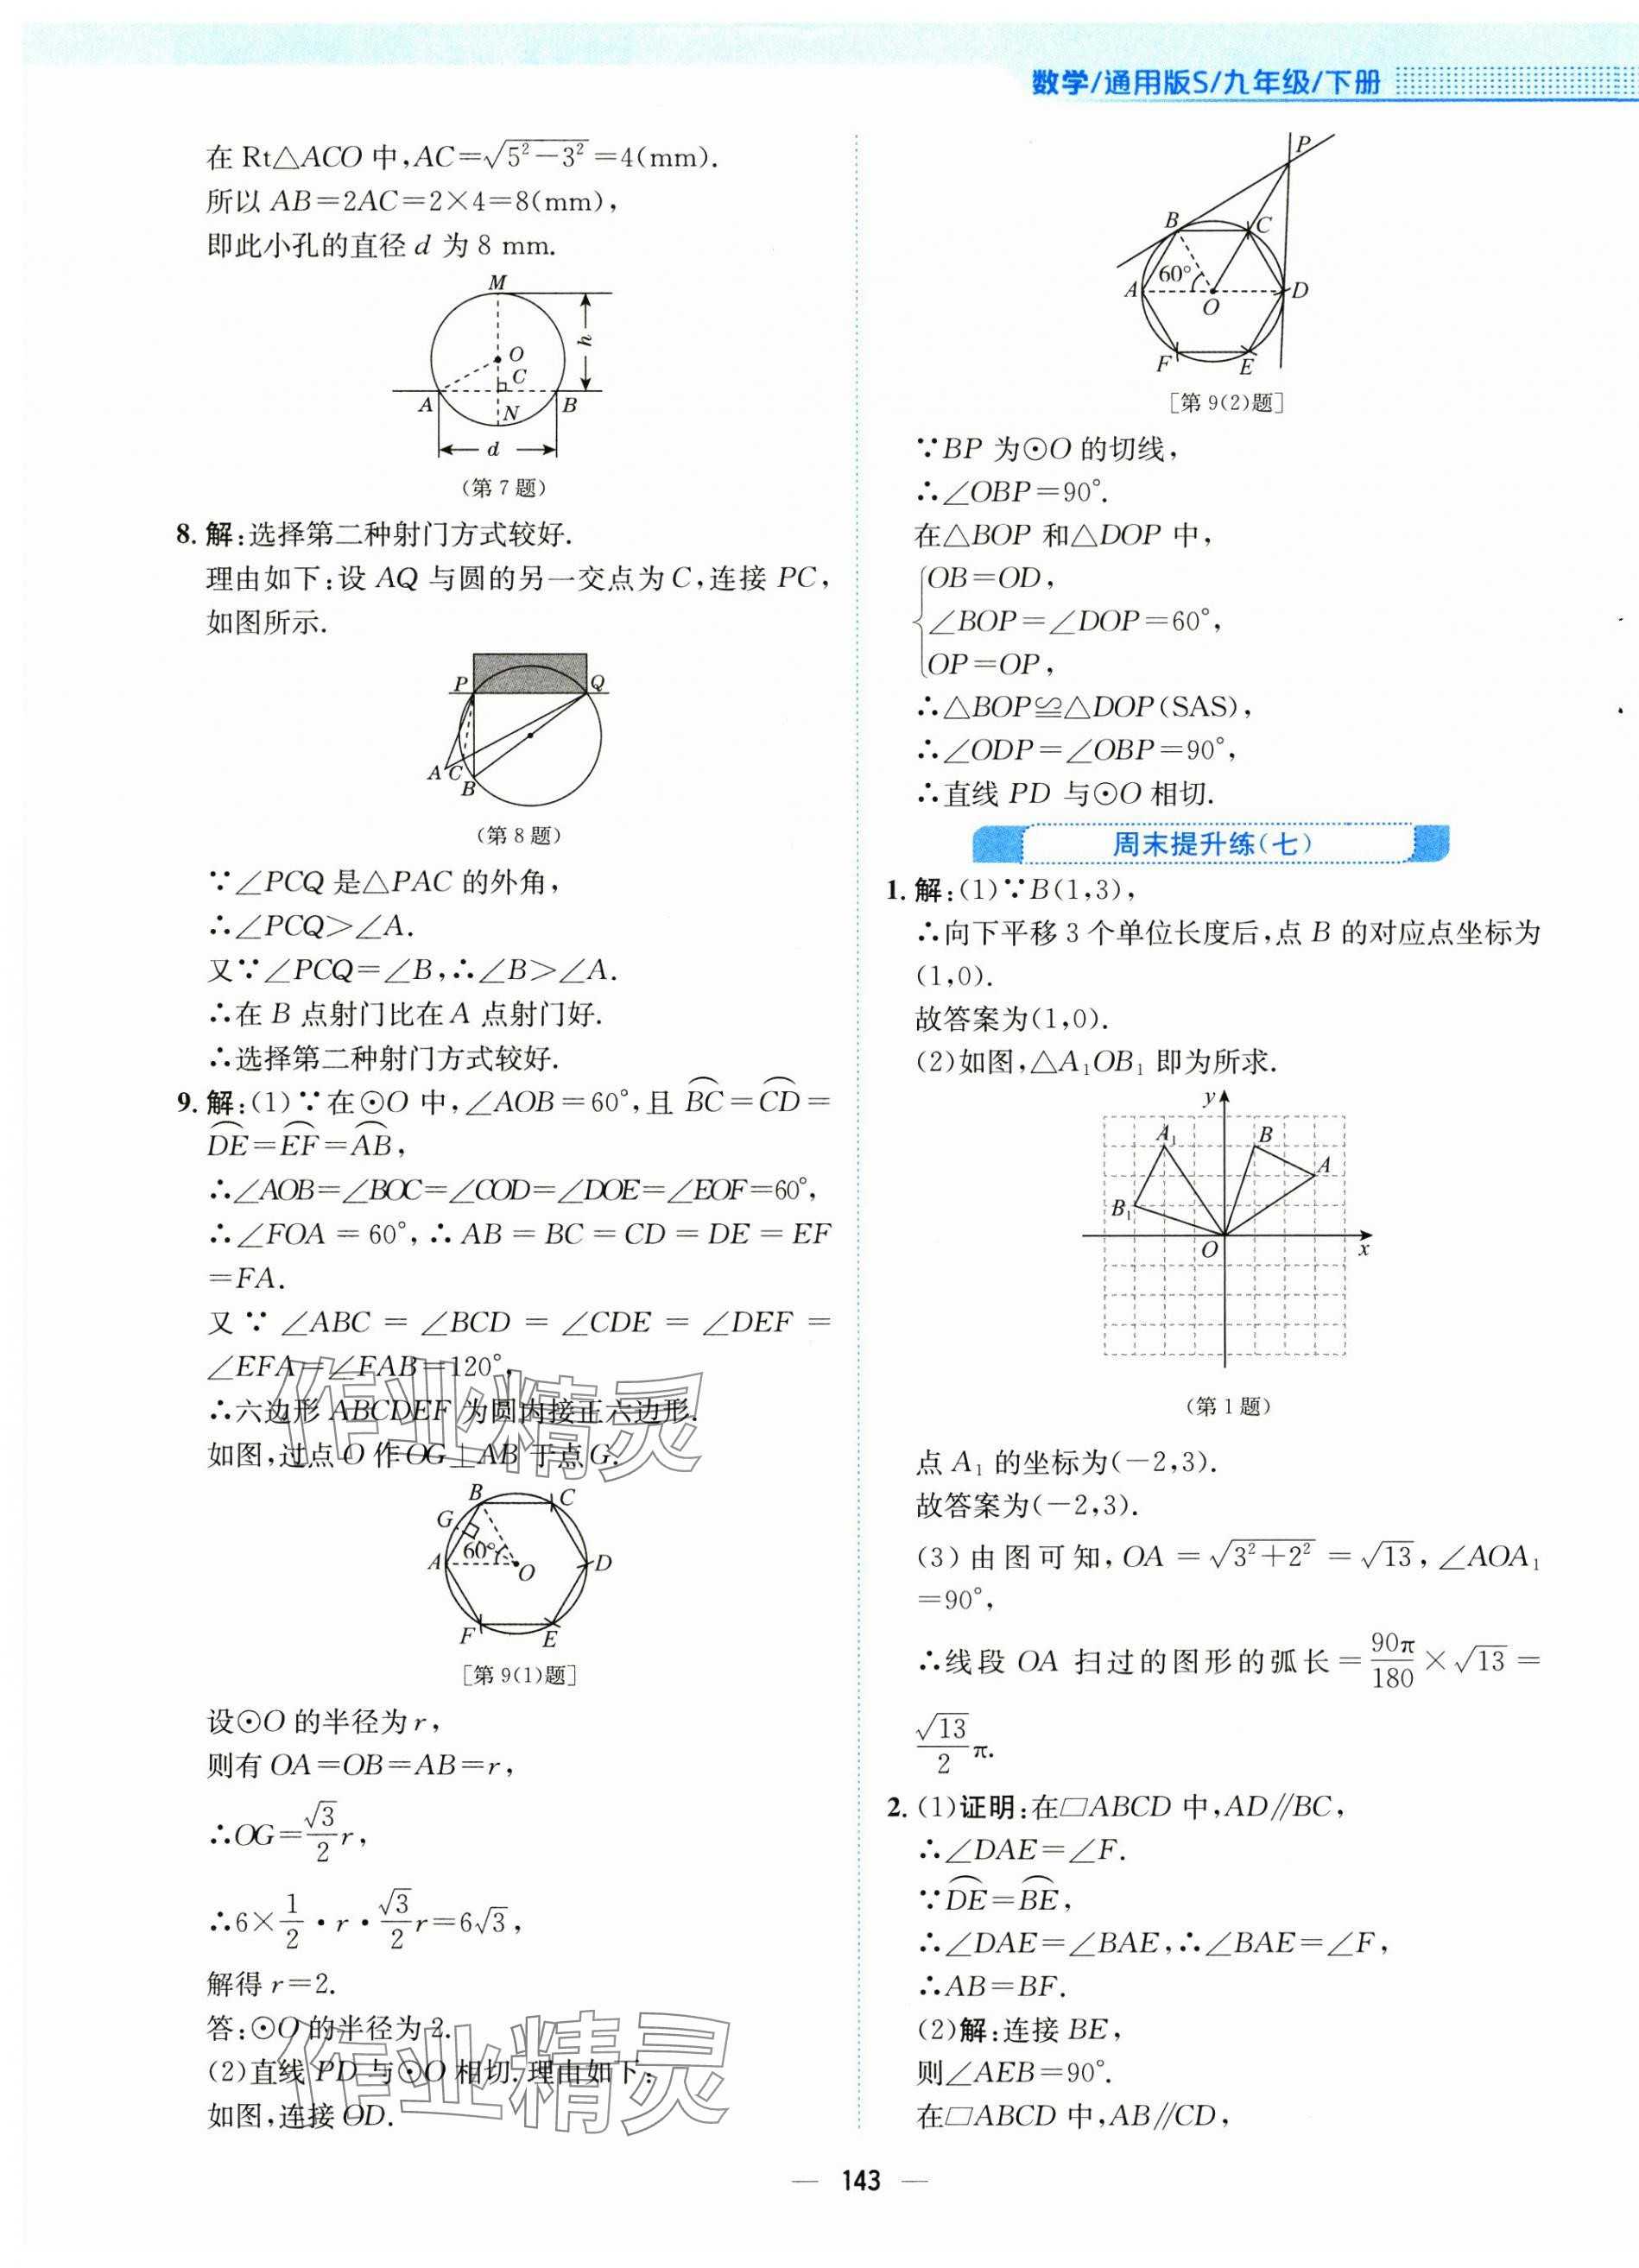 数学/通用版S/九年级/下册
在 Rt△ACO 中,AC=√(5²-3²)=4(mm).
所以 AB=2AC=2×4=8(mm),
即此小孔的直径 d 为 8 mm.
M
O
C
A
N
B
h
d
(第 7 题)
8. 解:选择第二种射门方式较好.
理由如下:设 AQ 与圆的另一交点为 C,连接 PC,
如图所示.
P
Q
A
C
B
(第 8 题)
∵∠PCQ 是△PAC 的外角,
∴∠PCQ>∠A.
又∵∠PCQ=∠B,∴∠B>∠A.
∴在 B 点射门比在 A 点射门好.
∴选择第二种射门方式较好.
9. 解:(1)∵在⊙O 中,∠AOB=60°,且 ⌒BC=⌒CD=
⌒DE=⌒EF=⌒AB,
∴∠AOB=∠BOC=∠COD=∠DOE=∠EOF=60°,
∴∠FOA=60°,∴AB=BC=CD=DE=EF
=FA.
又∵∠ABC=∠BCD=∠CDE=∠DEF=
∠EFA=∠FAB=120°,
∴六边形 ABCDEF 为圆内接正六边形.
如图,过点 O 作 OG⊥AB 于点 G.
作业精灵
B
C
G
A
60°
O
D
F
E
[第 9(1)题]
设⊙O 的半径为 r,
则有 OA=OB=AB=r,
∴OG=√3/2 r,
∴6×1/2·r·√3/2 r=6√3,
解得 r=2.
答:⊙O 的半径为 2.
(2)直线 PD 与⊙O 相切.理由如下:
如图,连接 OD.
作业精灵
P
B
C
60°
A
O
D
F
E
[第 9(2)题]
∵BP 为⊙O 的切线,
∴∠OBP=90°.
在△BOP 和△DOP 中,
OB=OD,
∠BOP=∠DOP=60°,
OP=OP,
∴△BOP≌△DOP(SAS),
∴∠ODP=∠OBP=90°,
∴直线 PD 与⊙O 相切.
周末提升练(七)
1. 解:(1)∵B(1,3),
∴向下平移 3 个单位长度后,点 B 的对应点坐标为
(1,0).
故答案为(1,0).
(2)如图,△A₁OB₁ 即为所求.
y
A₁
B
A
B₁
O
x
(第 1 题)
点 A₁ 的坐标为(-2,3).
故答案为(-2,3).
(3)由图可知,OA=√(3²+2²)=√13,∠AOA₁
=90°,
∴线段 OA 扫过的图形的弧长=90π/180×√13=
√13/2 π.
2. (1)证明:在▱ABCD 中,AD∥BC,
∴∠DAE=∠F.
∵⌒DE=⌒BE,
∴∠DAE=∠BAE,∴∠BAE=∠F,
∴AB=BF.
(2)解:连接 BE,
则∠AEB=90°.
在▱ABCD 中,AB∥CD,
— 143 —